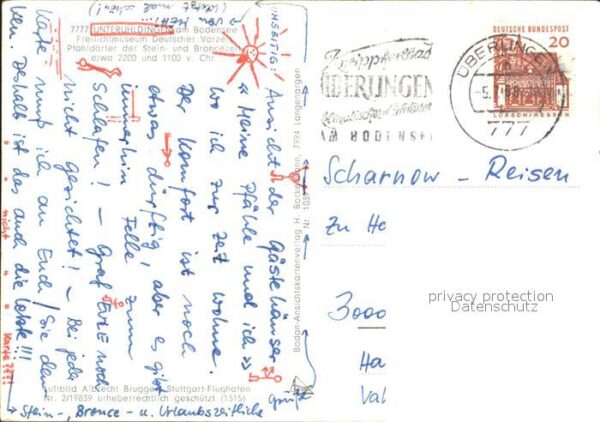 7777 UNTERUHLDINGEN am Bodensee
Freilichtmuseum Deutscher Vorzeit
Pfahldörfer der Stein- und Bronzezeit
etwa 2200 und 1100 v. Chr.
Ansicht der Gästehäuser
"Meine Pfähle und ich"
wo ich zur Zeit wohne.
Der Komfort ist noch
etwas dürftig! aber es gibt
immerhin Felle zum
Schlafen! - Graf noch
nicht gesichtet! - Bei jeder
Karte muß ich an Euch / Sie den
ken. Deshalb ist das auch die letzte!!!
nicht
Karte???!
→ Stein-, Bronce- u. Urlaubszeitliche
Grüße
Luftbild Albrecht Brugger, Stuttgart-Flughafen
Nr. 2/19839 urheberrechtlich geschützt (1315)
Bodan-Ansichtskartenverlag H. Bockelmann, 7994 Langenargen
DEUTSCHE BUNDESPOST
20
LORSCH/HESSEN
ÜBERLINGEN
777
Kneippheilbad
ÜBERLINGEN
AM BODENSEE
Scharnow - Reisen
Zu Ha
3000
Ha
privacy protection
Datenschutz